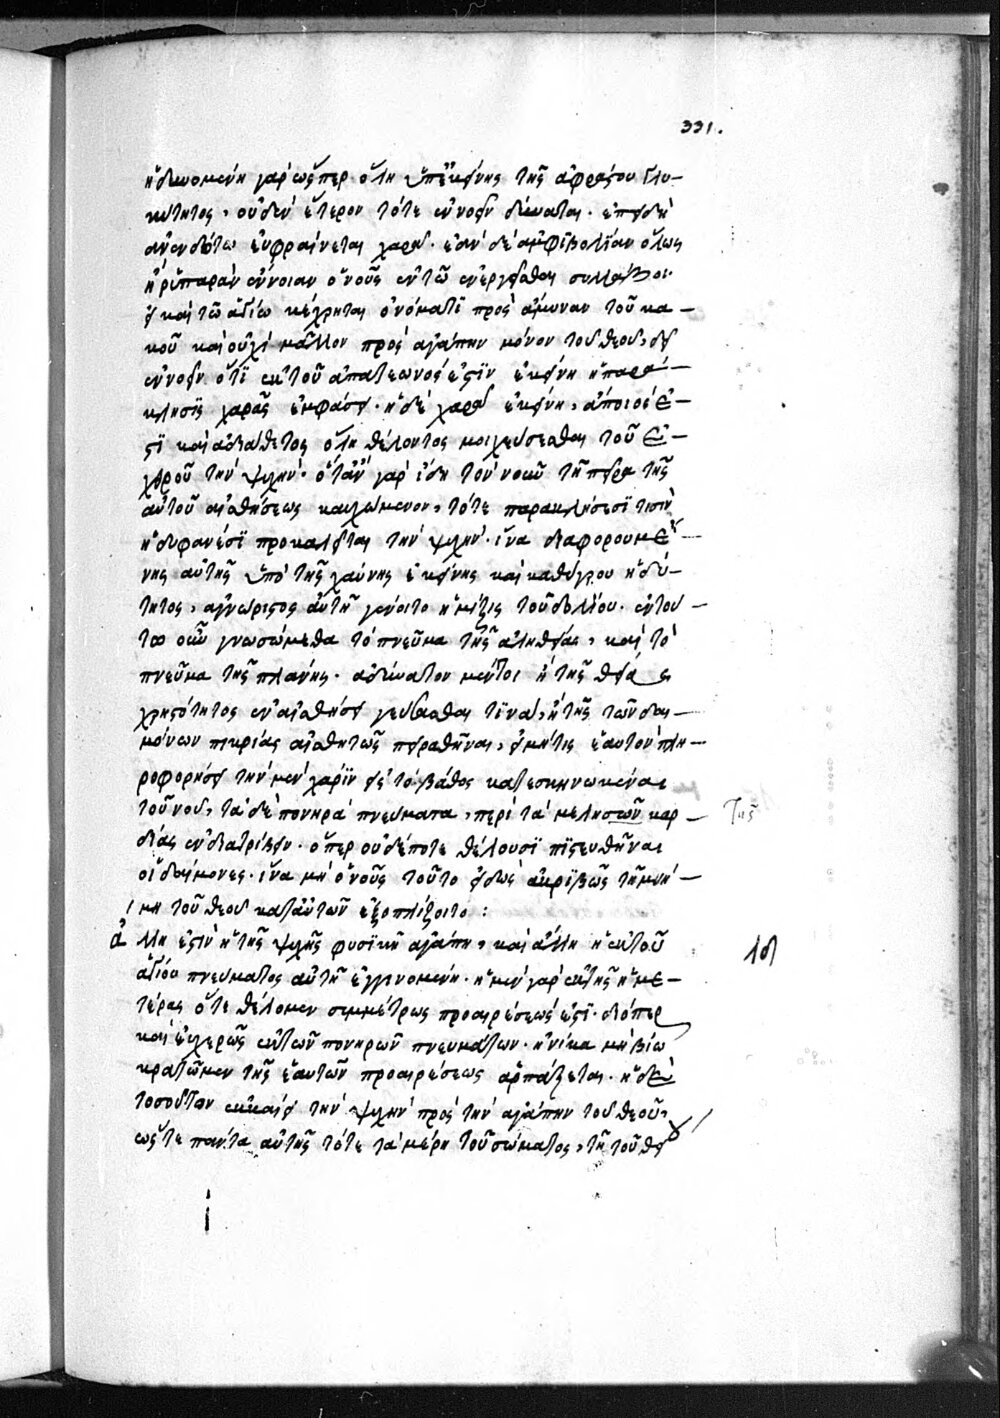 331.
ἡδυνομένη γὰρ ὥσπερ ὅλη ὑπ' ἐκείνης τῆς ἀφράστου γλυ-
κύτητος, οὐδὲν ἕτερον τότε ἐννοεῖν δύναται. ἐπειδὴ
ἀνενδότῳ εὐφραίνεται χαρᾷ. ἐὰν δὲ ἀμφιβολίαν ὅλως
ἢ ῥυπαρὰν ἔννοιαν ὁ νοῦς ἐν τῷ ἐνεργεῖσθαι συλλάβοι.
εἰ καὶ τῷ ἁγίῳ κέχρηται ὀνόματι πρὸς ἄμυναν τοῦ κα-
κοῦ καὶ οὐχὶ μᾶλλον πρὸς ἀγάπην μόνον τοῦ θεοῦ, δεῖ
ἐννοεῖν ὅτι ἐκ τοῦ ἀπατεῶνός ἐστιν ἐκείνη ἡ παρά-
κλησις χαρᾶς ἐμφάσει. ἡ δὲ χαρὰ ἐκείνη, ἄποιός ἐ-
στι καὶ ἀδιάθετος ὅλη θέλοντος μοιχεύσεσθαι τοῦ ἐ-
χθροῦ τὴν ψυχήν. ὅταν γὰρ ἴδῃ τὸν νοῦν τῇ πείρᾳ τῆς
αὐτοῦ αἰσθήσεως καυχώμενον, τότε παρακλήσεσί τισιν
ἡδυφανέσι προκαλεῖται τὴν ψυχήν. ἵνα διαφορουμέ-
νης αὐτῆς ὑπὸ τῆς χαύνης ἐκείνης καὶ καθύγρου ἡδύ-
τητος, ἀγνώριστος αὐτῇ γένοιτο ἡ μίξις τοῦ δολίου. ἐν τού-
τῳ οὖν γνωσόμεθα τὸ πνεῦμα τῆς ἀληθείας, καὶ τὸ
πνεῦμα τῆς πλάνης. ἀδύνατον μέντοι ἢ τῆς θείας
χρηστότητος ἐν αἰσθήσει γεύσασθαι τινὰ, ἢ τῆς τῶν δαι-
μόνων πικρίας αἰσθητῶς πειραθῆναι, εἰ μή τις ἑαυτὸν πλη-
ροφορήσῃ τὴν μὲν χάριν εἰς τὸ βάθος κατεσκηνωκέναι
τοῦ νοῦ, τὰ δὲ πονηρὰ πνεύματα, περὶ τὰ μέλη τῶν καρ-
τῆς
δίας ἐνδιατρίβειν. ὅπερ οὐδέποτε θέλουσι πιστευθῆναι
οἱ δαίμονες. ἵνα μὴ ὁ νοῦς τοῦτο εἰδὼς ἀκριβῶς τῇ μνή-
μῃ τοῦ θεοῦ κατ' αὐτῶν ἐξοπλίζοιτο:
ἄλλη ἐστὶν ἡ τῆς ψυχῆς φυσικὴ ἀγάπη, καὶ ἄλλη ἡ ἐκ τοῦ
ἁγίου πνεύματος αὐτῇ ἐγγινομένη. ἡ μὲν γὰρ ἐκ τῆς ἡμε-
τέρας ὅτε θέλομεν συμμέτρως προαιρέσεώς ἐστι. διόπερ
καὶ εὐχερῶς ἐκ τῶν πονηρῶν πνευμάτων. ἡνίκα μὴ βίῳ
κρατῶμεν τῆς ἑαυτῶν προαιρέσεως ἁρπάζεται. ἡ δὲ
τοσοῦτον ἐκκαίει τὴν ψυχὴν πρὸς τὴν ἀγάπην τοῦ θεοῦ,
ὥστε πάντα αὐτῆς τότε τὰ μέρη τοῦ σώματος, τῇ τοῦ θεί